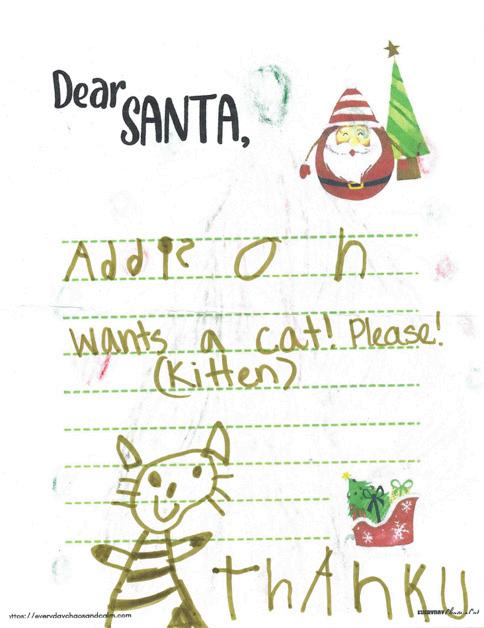 Dear
SANTA,
Addison
wants a cat! Please!
(Kitten)
thAnKU
https://everydaychaosandcalm.com